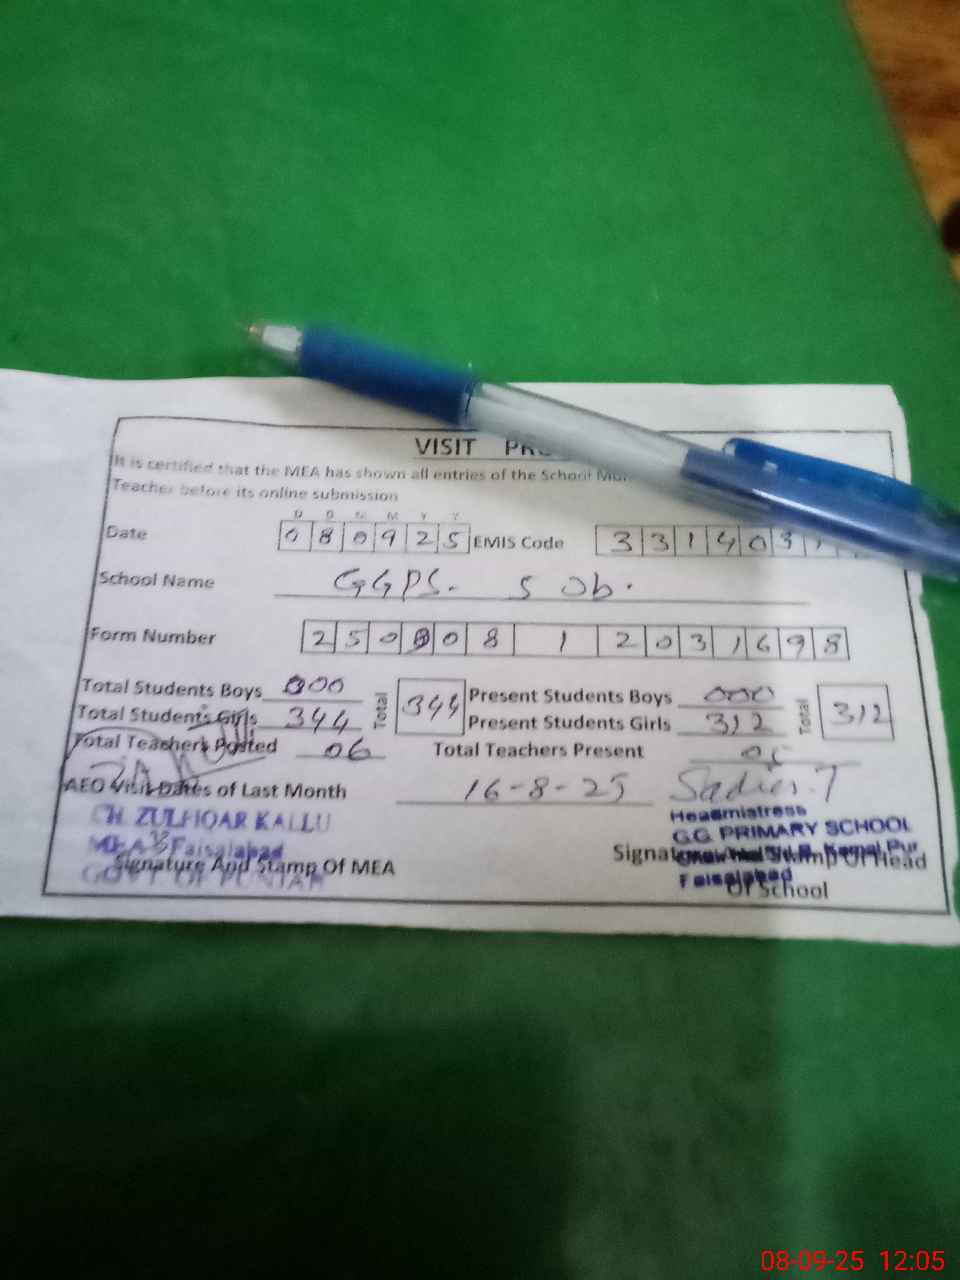 VISIT
It is certified that the MEA has shown all entries of the School
Teacher before its online submission
D D M M Y Y
Date 0 8 0 9 2 5 EMIS Code 3 3 1 4 0 3
School Name GGPS.
Form Number 2 5 0 8 0 8 1 2 0 3 1 6 9 8
Total Students Boys 000 Total 344 Present Students Boys 000 Total 312
Total Students Girls 344 Present Students Girls 312
Total Teachers Posted 06 Total Teachers Present
AEO Visit Dates of Last Month 16-8-25
CH. ZULFIQAR KALLU
MEA Faisalabad
GOVT OF PUNJAB
Signature And Stamp Of MEA
Headmistress
G.G. PRIMARY SCHOOL
Faisalabad
Signature Stamp Of Head
Of School
08-09-25 12:05